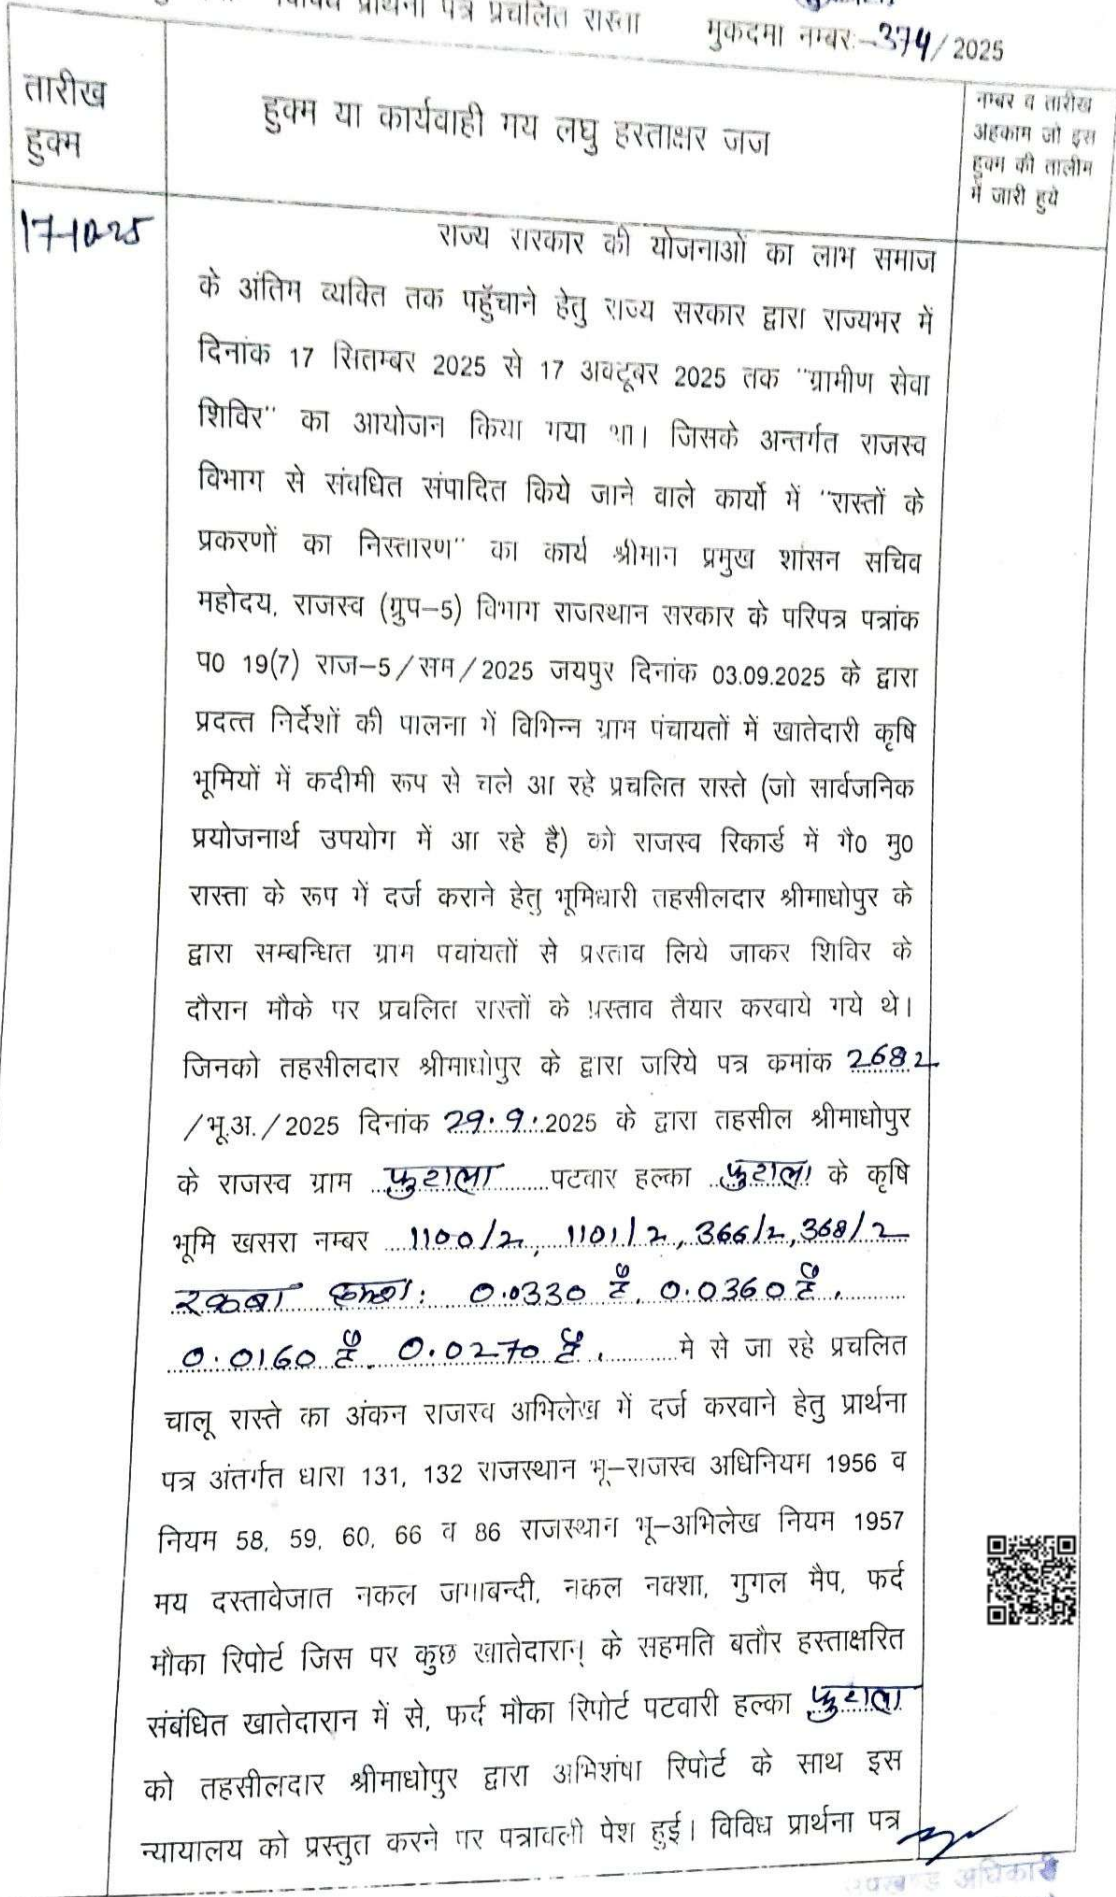 विविध प्रार्थना पत्र प्रचलित रास्ता मुकदमा नम्बर:-374/2025
तारीख हुक्म
हुक्म या कार्यवाही मय लघु हस्ताक्षर जज
नम्बर व तारीख
अहकाम जो इस
हुक्म की तालीम
में जारी हुये
17-10-25
राज्य सरकार की योजनाओं का लाभ समाज
के अंतिम व्यक्ति तक पहुँचाने हेतु राज्य सरकार द्वारा राज्यभर में
दिनांक 17 सितम्बर 2025 से 17 अक्टूबर 2025 तक "ग्रामीण सेवा
शिविर" का आयोजन किया गया था। जिसके अन्तर्गत राजस्व
विभाग से संबधित संपादित किये जाने वाले कार्यो में "रास्तों के
प्रकरणों का निस्तारण" का कार्य श्रीमान प्रमुख शांसन सचिव
महोदय, राजस्व (ग्रुप-5) विभाग राजस्थान सरकार के परिपत्र पत्रांक
प0 19(7) राज-5/सम/2025 जयपुर दिनांक 03.09.2025 के द्वारा
प्रदत्त निर्देशों की पालना में विभिन्न ग्राम पंचायतों में खातेदारी कृषि
भूमियों में कदीमी रूप से चले आ रहे प्रचलित रास्ते (जो सार्वजनिक
प्रयोजनार्थ उपयोग में आ रहे है) को राजस्व रिकार्ड में गै0 मु0
रास्ता के रूप में दर्ज कराने हेतु भूमिधारी तहसीलदार श्रीमाधोपुर के
द्वारा सम्बन्धित ग्राम पचांयतों से प्रस्ताव लिये जाकर शिविर के
दौरान मौके पर प्रचलित रास्तों के प्रस्ताव तैयार करवाये गये थे।
जिनको तहसीलदार श्रीमाधोपुर के द्वारा जरिये पत्र कमांक 2682
/भू.अ./2025 दिनांक 29.9.2025 के द्वारा तहसील श्रीमाधोपुर
के राजस्व ग्राम फुटाला पटवार हल्का फुटाला के कृषि
भूमि खसरा नम्बर 1100/2, 1101/2, 366/2, 368/2
रकबा क्रमश: 0.0330 है. 0.0360 है.
0.0160 है. 0.0270 है. मे से जा रहे प्रचलित
चालू रास्ते का अंकन राजस्व अभिलेख में दर्ज करवाने हेतु प्रार्थना
पत्र अंतर्गत धारा 131, 132 राजस्थान भू-राजस्व अधिनियम 1956 व
नियम 58, 59, 60, 66 व 86 राजस्थान भू-अभिलेख नियम 1957
मय दस्तावेजात नकल जमाबन्दी, नकल नक्शा, गुगल मैप, फर्द
मौका रिपोर्ट जिस पर कुछ खातेदारान् के सहमति बतौर हस्ताक्षरित
संबंधित खातेदारान में से, फर्द मौका रिपोर्ट पटवारी हल्का फुटाला
को तहसीलदार श्रीमाधोपुर द्वारा अभिशंषा रिपोर्ट के साथ इस
न्यायालय को प्रस्तुत करने पर पत्रावली पेश हुई। विविध प्रार्थना पत्र
उपखण्ड अधिकारी